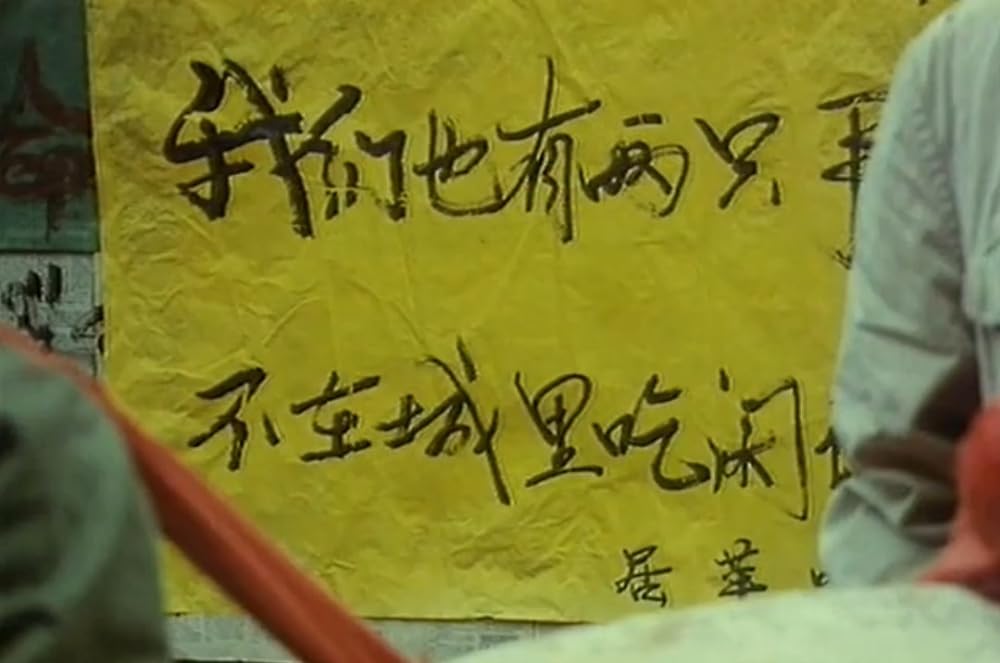 我们也有两只
不在城里吃闲